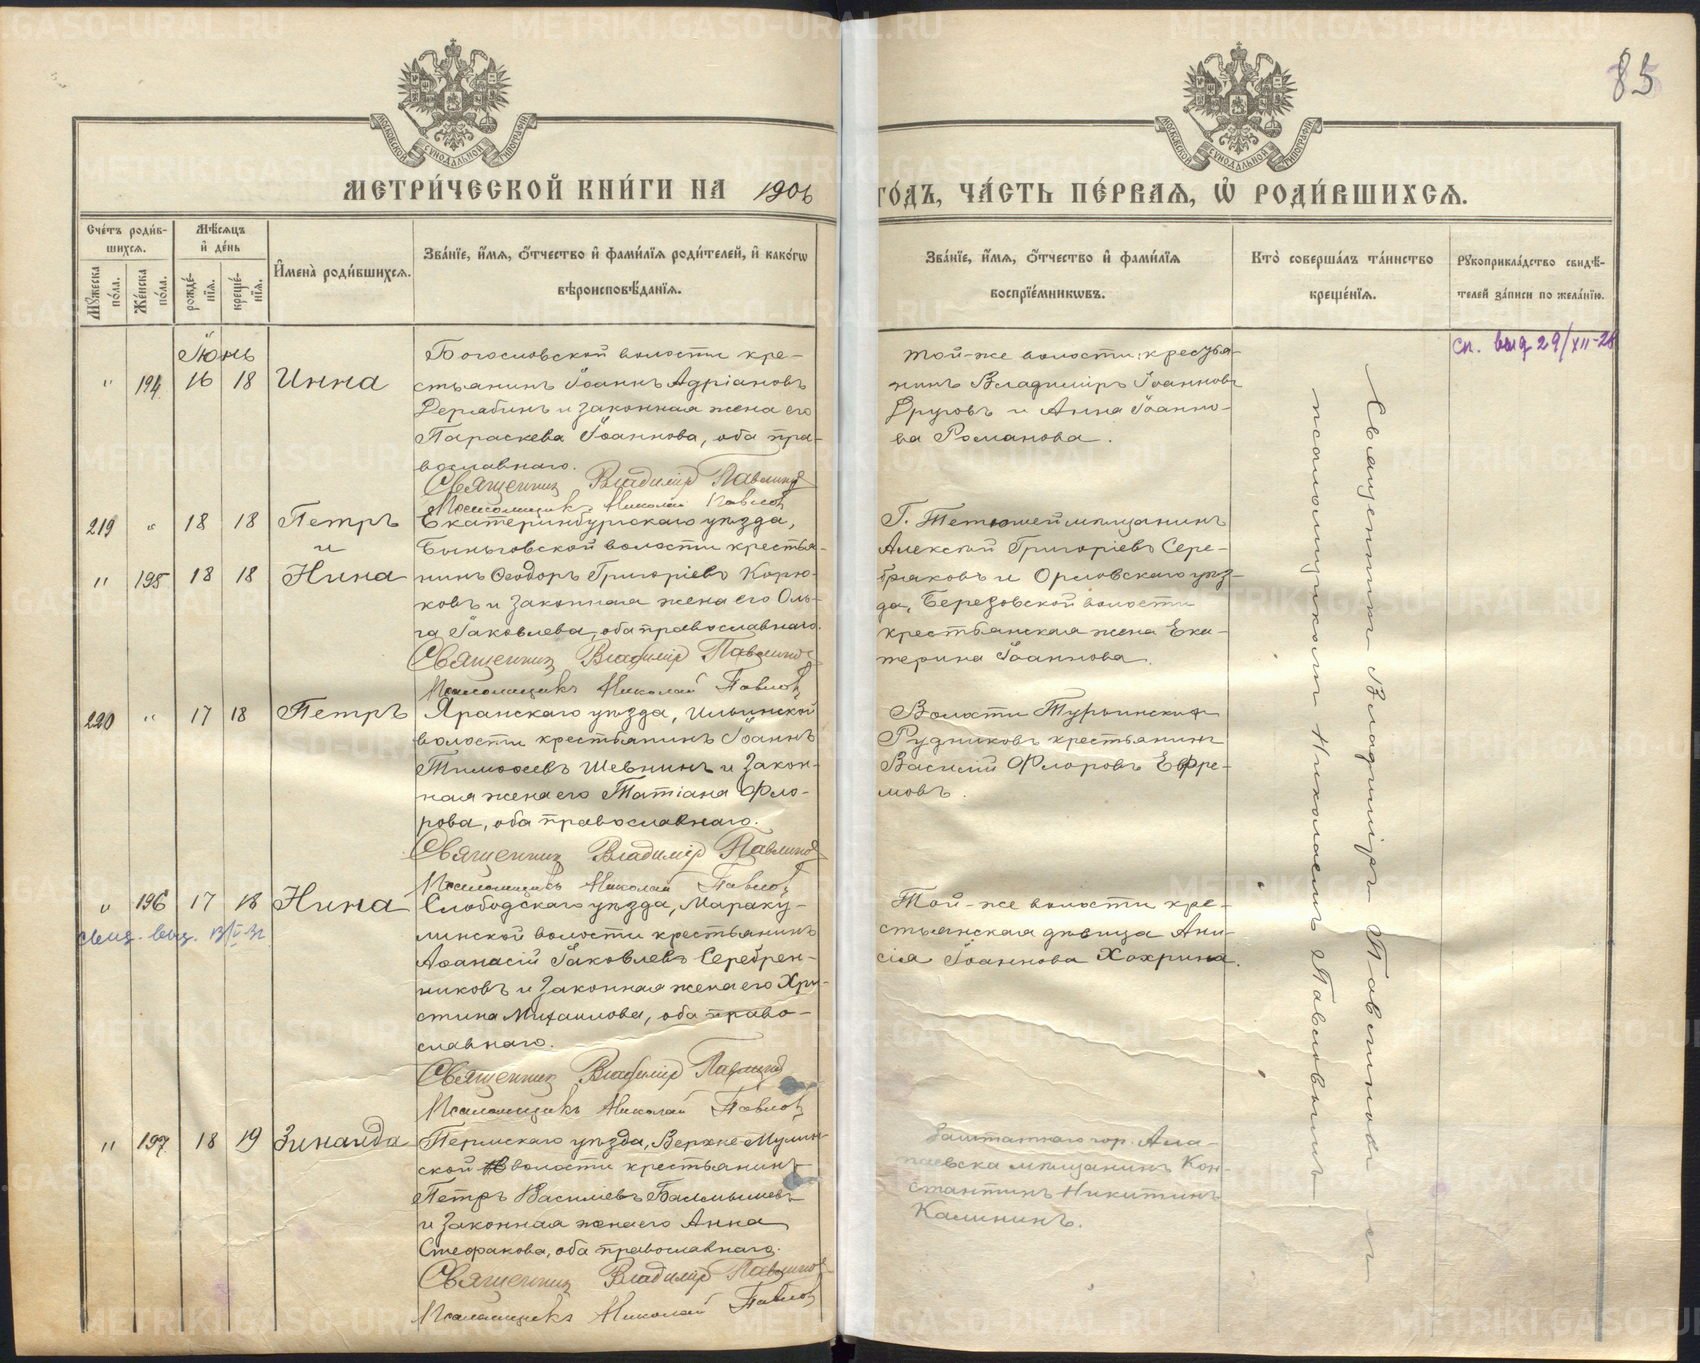 85
МОСКОВСКОЙ СѴНОДАЛЬНОЙ ТИПОГРАФІИ
МОСКОВСКОЙ СѴНОДАЛЬНОЙ ТИПОГРАФІИ
МЕТРИ́ЧЕСКОЙ КНИ́ГИ НА 1906 ГО́ДЪ, ЧА́СТЬ ПЕ́РВАѦ, Ѡ҆ РОДИ́ВШИХСѦ.
Сче́тъ роди́в-
шихсѧ.
Мꙋ́жеска по́ла.
Же́нска по́ла.
Мѣ́сѧцъ
и҆ де́нь
рожде́-нїѧ.
креще́-нїѧ.
И҆мена̀ роди́вшихсѧ.
Зва́нїе, и҆́мѧ, ѻ҆́тчество и҆ фами́лїѧ роди́телей, и҆ како́гѡ
вѣроисповѣ́данїѧ.
Зва́нїе, и҆́мѧ, ѻ҆́тчество и҆ фами́лїѧ
воспрїе́мникѡвъ.
Кто̀ соверша́лъ та́инство
креще́нїѧ.
Рꙋкоприкла́дство свидѣ́-
телей за́писи по жела́нїю.
Іюнь
" 194 16 18 Инна
Богословской волости кре-
стьянинъ Іоаннъ Адріановъ
Дерябинъ и законная жена его
Параскева Іоаннова, оба пра-
вославнаго.
Священник Владимір Павлинов
Псаломщикъ Николай Павлов
той-же волости крестья-
нинъ Владиміръ Іоанновъ
Друговъ и Анна Іоанно-
ва Романова.
сп. выд 29/XII-28
219 " 18 18 Петръ
и
" 195 18 18 Нина
Екатеринбургскаго уѣзда,
Быньговской волости крестья-
нинъ Ѳеодоръ Григоріевъ Корю-
ковъ и законная жена его Оль-
га Іаковлева, оба православнаго.
Священник Владимір Павлинов
Псаломщикъ Николай Павлов
Г. Тетюшей мѣщанинъ
Алексій Григоріевъ Сере-
бряковъ и Орловскаго уѣз-
да, Березовской волости
крестьянская жена Ека-
терина Іоаннова.
220 " 17 18 Петръ
Яранскаго уѣзда, Ильинской
волости крестьянинъ Іоаннъ
Тимоѳеевъ Шевнинъ и закон-
ная жена его Татіана Фло-
рова, оба православнаго.
Священник Владимір Павлинов
Псаломщикъ Николай Павлов
Волости Турьинскихъ
Рудниковъ крестьянинъ
Василій Флоровъ Ефре-
мовъ.
" 196 17 18 Нина
свид. выд.
Слободскаго уѣзда, Мараку-
линской волости крестьянинъ
Аѳанасій Іаковлевъ Серебрен-
никовъ и законная жена его Хри-
стина Михаилова, оба право-
славнаго.
Священник Владимір Павлинов
Псаломщикъ Николай Павлов
Той-же волости кре-
стьянская дѣвица Ани-
сія Іоаннова Хохрина.
" 197 18 19 Зинаида
Пермскаго уѣзда, Верхне-Мулин-
ской волости крестьянинъ
Петръ Василіевъ Балмышевъ
и законная жена его Анна
Стефанова, оба православнаго.
Священник Владимір Павлинов
Псаломщикъ Николай Павлов
Заштатнаго гор. Ала-
паевска мѣщанинъ Кон-
стантинъ Никитинъ
Калининъ.
Священникъ Владиміръ Павлиновъ съ
псаломщикомъ Николаемъ Павловымъ
METRIKI.GASO-URAL.RU